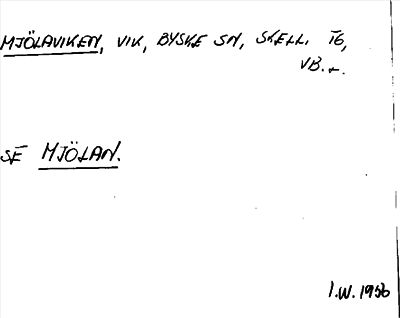 MJÖLAVIKEN, VIK, BYSKE SN, SKELL. TG,
VB. L.
SE MJÖLAN.
I.W. 1956